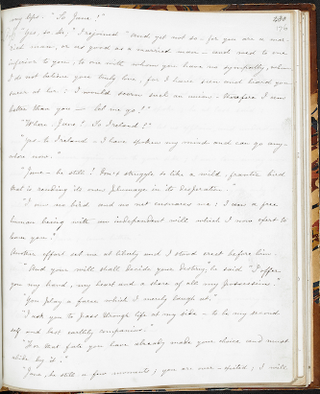 my lips. "So Jane!"
"Yes, so, Sir," I rejoined "and yet not so - for you are a mar-
ried man, or as good as a married man - and wed to one
inferior to you, to one with whom you have no sympathy, whom
I do not believe you truly love, for I have seen and heard you
sneer at her: I would scorn such an union - therefore I am
better than you - let me go!"
"Where, Jane? To Ireland?"
"Yes - to Ireland - I have spoken my mind and can go any-
where now."
"Jane - be still! Don't struggle so like a wild, frantic bird
that is rending its own plumage in its desperation."
"I am no bird and no net ensnares me: I am a free
human being with an independent will, which I now exert to
leave you."
Another effort set me at liberty and I stood erect before him.
"And your will shall decide your destiny," he said "I offer
you my hand, my heart and a share of all my possessions."
"You play a farce which I merely laugh at."
"I ask you to pass through life at my side - to be my second
self and best earthly companion."
"For that fate you have already made your choice and must
abide by it."
"Jane, be still a few moments; you are over-excited; I will